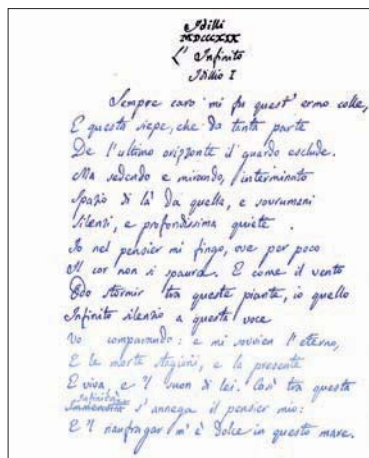 Idilli
MDCCCXIX
L'Infinito
Idillio I
Sempre caro mi fu quest' ermo colle,
E questa siepe, che da tanta parte
De l'ultimo orizzonte il guardo esclude.
Ma sedendo e mirando, interminato
Spazio di là da quella, e sovrumani
Silenzi, e profondissima quiete
Io nel pensier mi fingo, ove per poco
Il cor non si spaura. E come il vento
Odo stormir tra queste piante, io quello
Infinito silenzio a questa voce
Vo comparando: e mi sovvien l'eterno,
E le morte stagioni, e la presente
E viva, e 'l suon di lei. Così tra questa
Infinità
Immensità s'annega il pensier mio:
E 'l naufragar m'è dolce in questo mare.